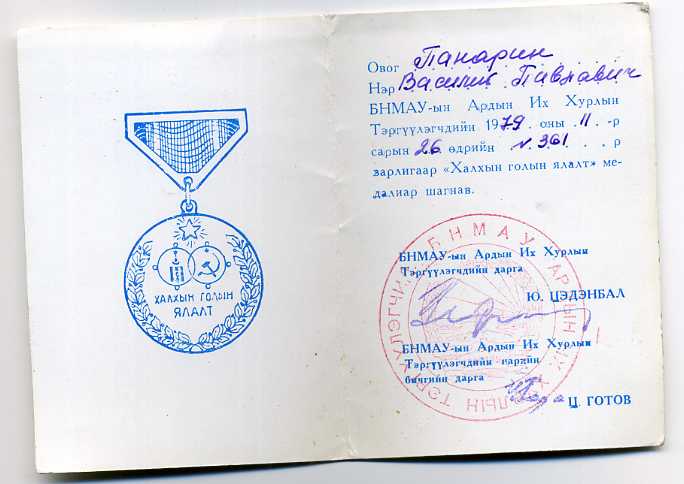 ХАЛХЫН ГОЛЫН
ЯЛАЛТ
Овог Панарин
Нэр Василий Павлавич
БНМАУ-ын Ардын Их Хурлын
Тэргүүлэгчдийн 1979 . оны . 11 . -р
сарын 26 өдрийн № 361 . . . р
зарлигаар «Халхын голын ялалт» ме-
далиар шагнав.
БНМАУ-ын Ардын Их Хурлын
Тэргүүлэгчдийн дарга
Ю. ЦЭДЭНБАЛ
БНМАУ-ын Ардын Их Хурлын
Тэргүүлэгчдийн нарийн
бичгийн дарга
Ц. ГОТОВ
БНМАУ АРДЫН ИХ ХУРЛЫН ТЭРГҮҮЛЭГЧИД